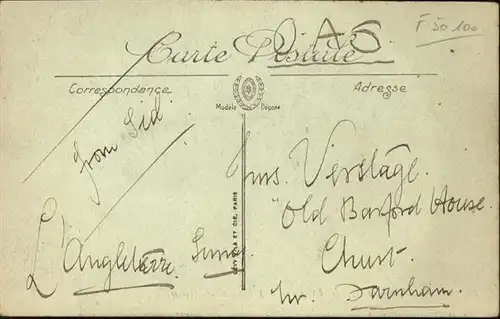 OAS
F 50 100
Carte Postale
Correspondance
Adresse
Modèle Déposé
from Sid
L'Angleterre.
LEVY FILS ET CIE, PARIS
Mrs. Verstage.
"Old Barford House.
Churt.
Nr. Farnham.